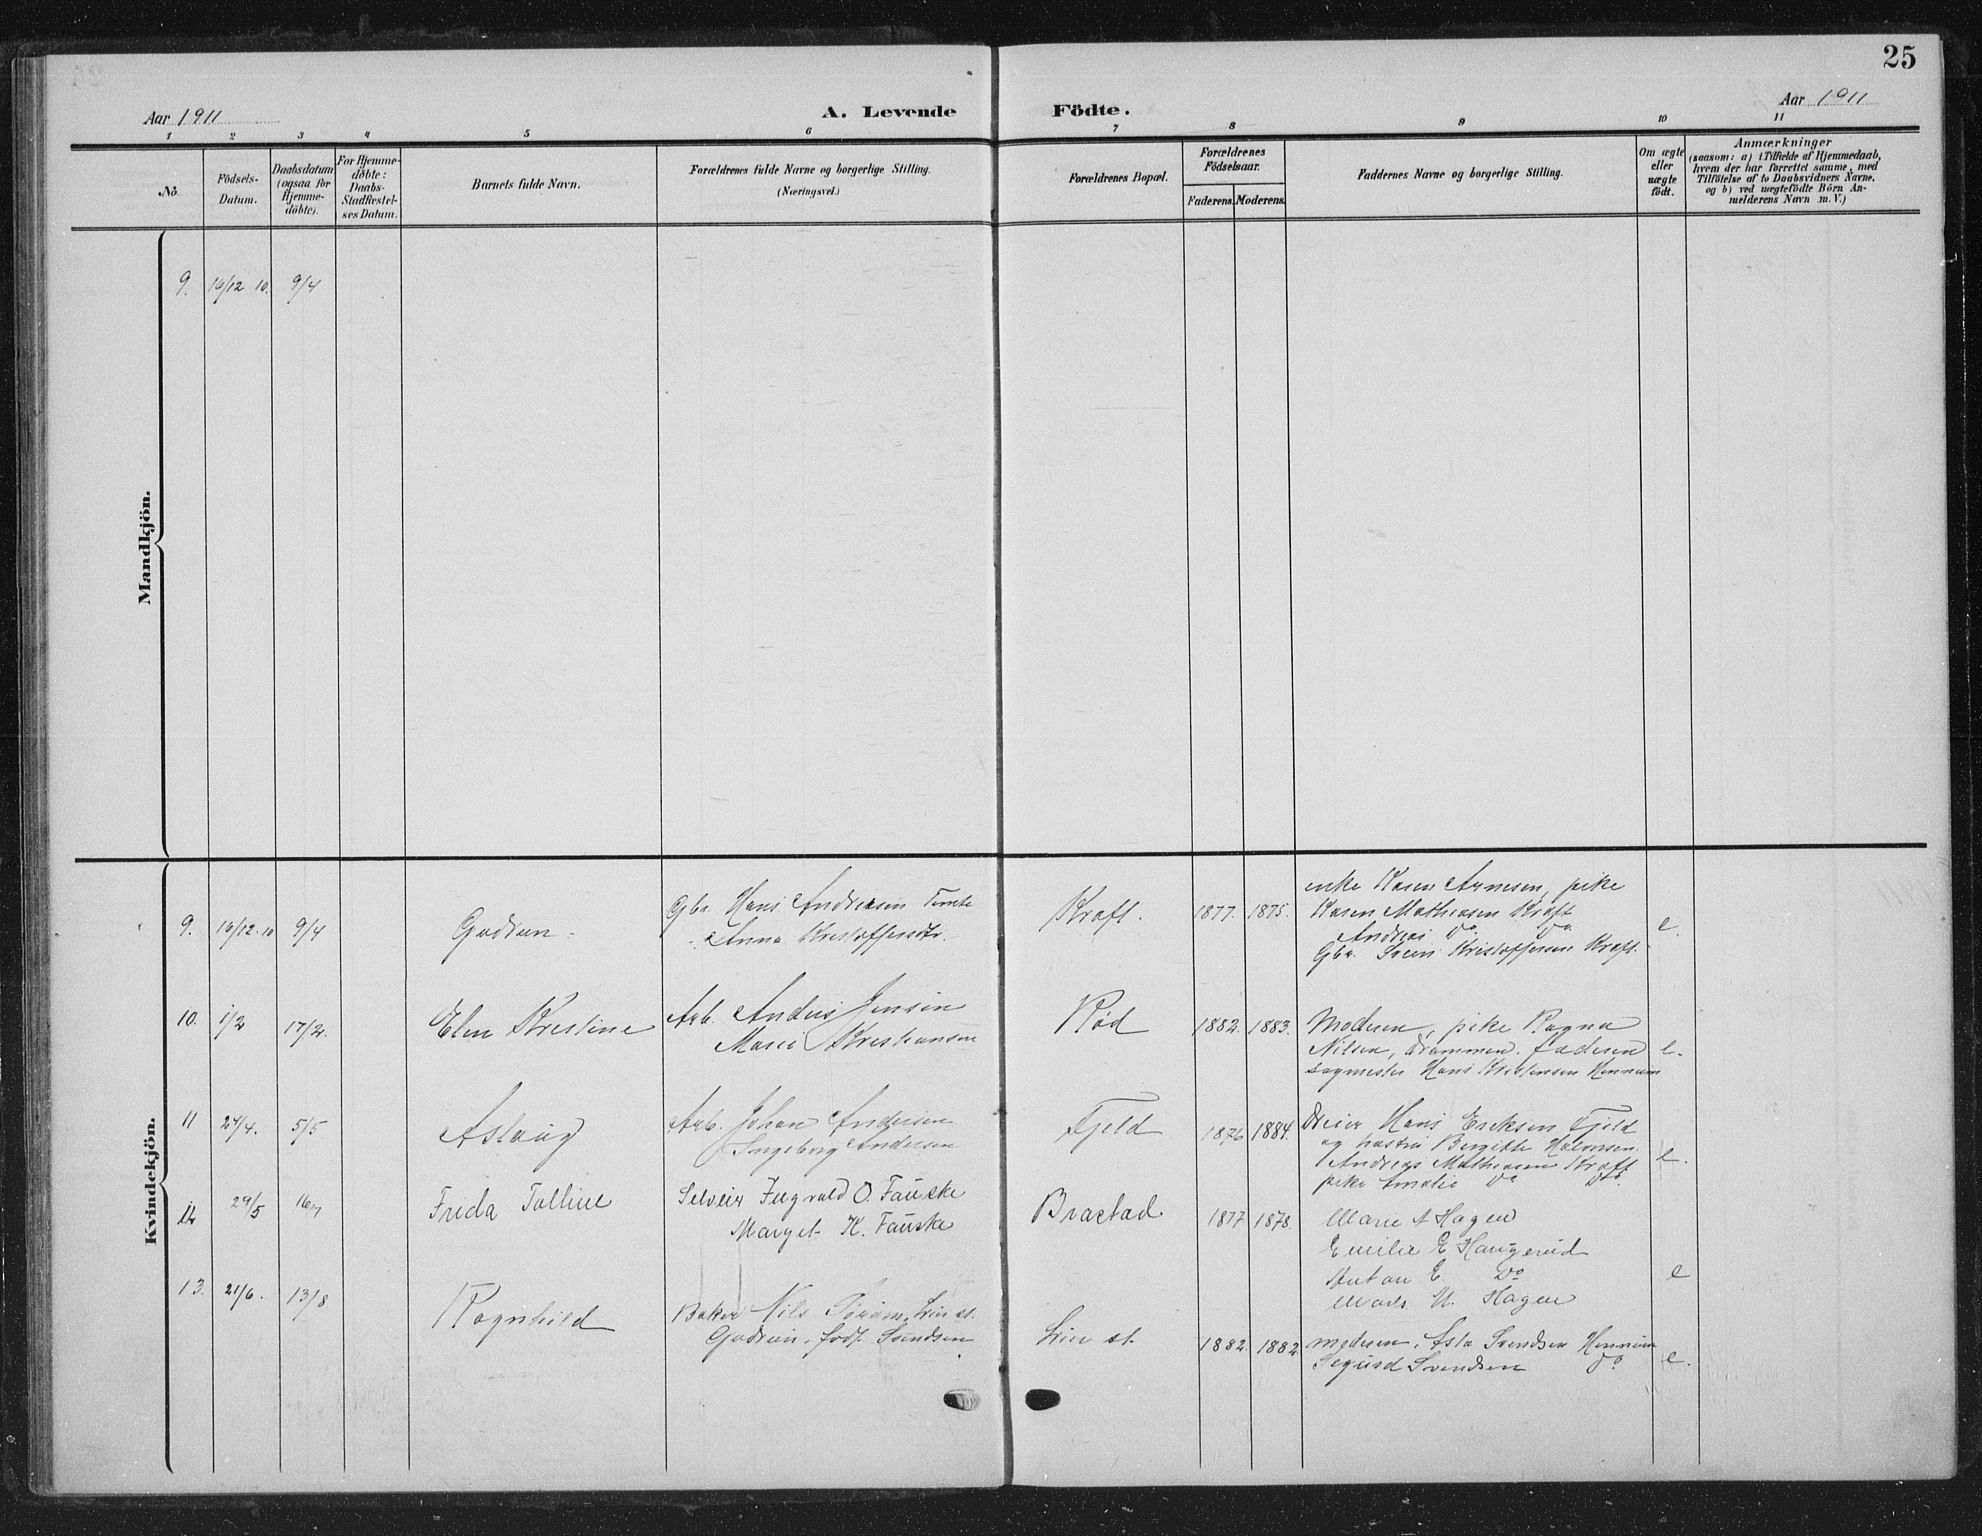 25
Aar 1911
A. Levende Födte.
Aar 1911
1 2 3 4 5 6 7 8 9 10 11
No.
Födsels-
Datum.
Daabsdatum
(ogsaa for
Hjemme-
döbte).
For Hjemme-
döbte:
Daabs-
Stadfæstel-
ses Datum.
Barnets fulde Navn.
Forældrenes fulde Navne og borgerlige Stilling.
(Næringsvei.)
Forældrenes Bopæl.
Forældrenes
Födselsaar.
Faderens. Moderens.
Faddernes Navne og borgerlige Stilling.
Om ægte
eller
uægte
födt.
Anmærkninger
(saasom: a) i Tilfælde af Hjemmedaab,
hvem der har forrettet samme, med
Tilföielse af to Daabsvidners Navne.
og b) ved uægtefödte Börn An-
melderens Navn m. V.)
Mandkjön.
9. 16/12 10. 9/4
Kvindekjön.
9. 16/12 10 9/4
Gudrun.
Gbr. Hans Andersen Tomte
Anna Kristoffersdtr.
Kraft.
1877. 1875.
enke Karen Arnesen, pike
Karen Mathiesen Kraft
Andreas Do Do
Gbr. Svein Kristoffersen Kraft.
e.
10. 1/2 17/2.
Elen Kristine
Arb. Anders Jensen
Marie Kristiansen
Rød
1882. 1883.
Moderen, pike Ragna
Nilsen, Drammen. faderen
sagmester Hans Kristensen Hennum
e.
11 24/4. 5/5
Aslaug
Arb. Johan Andersen
Ingeborg Andersen
Fjeld
1876 1884.
Hans Eriksen Fjeld
og hustru Birgitte Halvorsen.
Andreas Mathiesen Kraft
pike Amalie Do Do.
e.
12 29/5 16/7
Frida Talline
Ingvald O. Fauske
Marget K. Fauske
Brastad
1877 1878.
Marie A Hagen
Emilie E Haugerud
Anton E. Do
U. Hagen
e
13. 21/6. 13/8
Ragnhild
Baker Nils Lier st.
Gudrun, født Svendsen
Lier st.
1882. 1882
moderen, Asta Svendsen Hennum
Sigurd Svendsen Do
e.